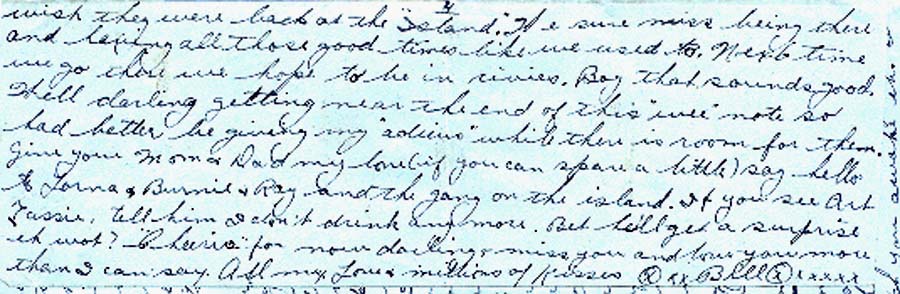 4
wish they were back at the "Island." We sure miss being there
and having all those good times like we used to. Next time
we go there we hope to be in civies. Boy that sounds good.
Well darling getting near the end of this "wee" note so
had better be giving my "adieus" while there is room for them.
Give your Mom & Dad my love (if you can spare a little) say hello
to Lorna & Burnie & Ray and the gang on the island. If you see Art
Tassie, tell him I don't drink any more. Bet he'll get a surprise
eh wot? Cheerio for now darling, miss you and love you more
than I can say. All my Love & millions of kisses xx Bill xxxxx